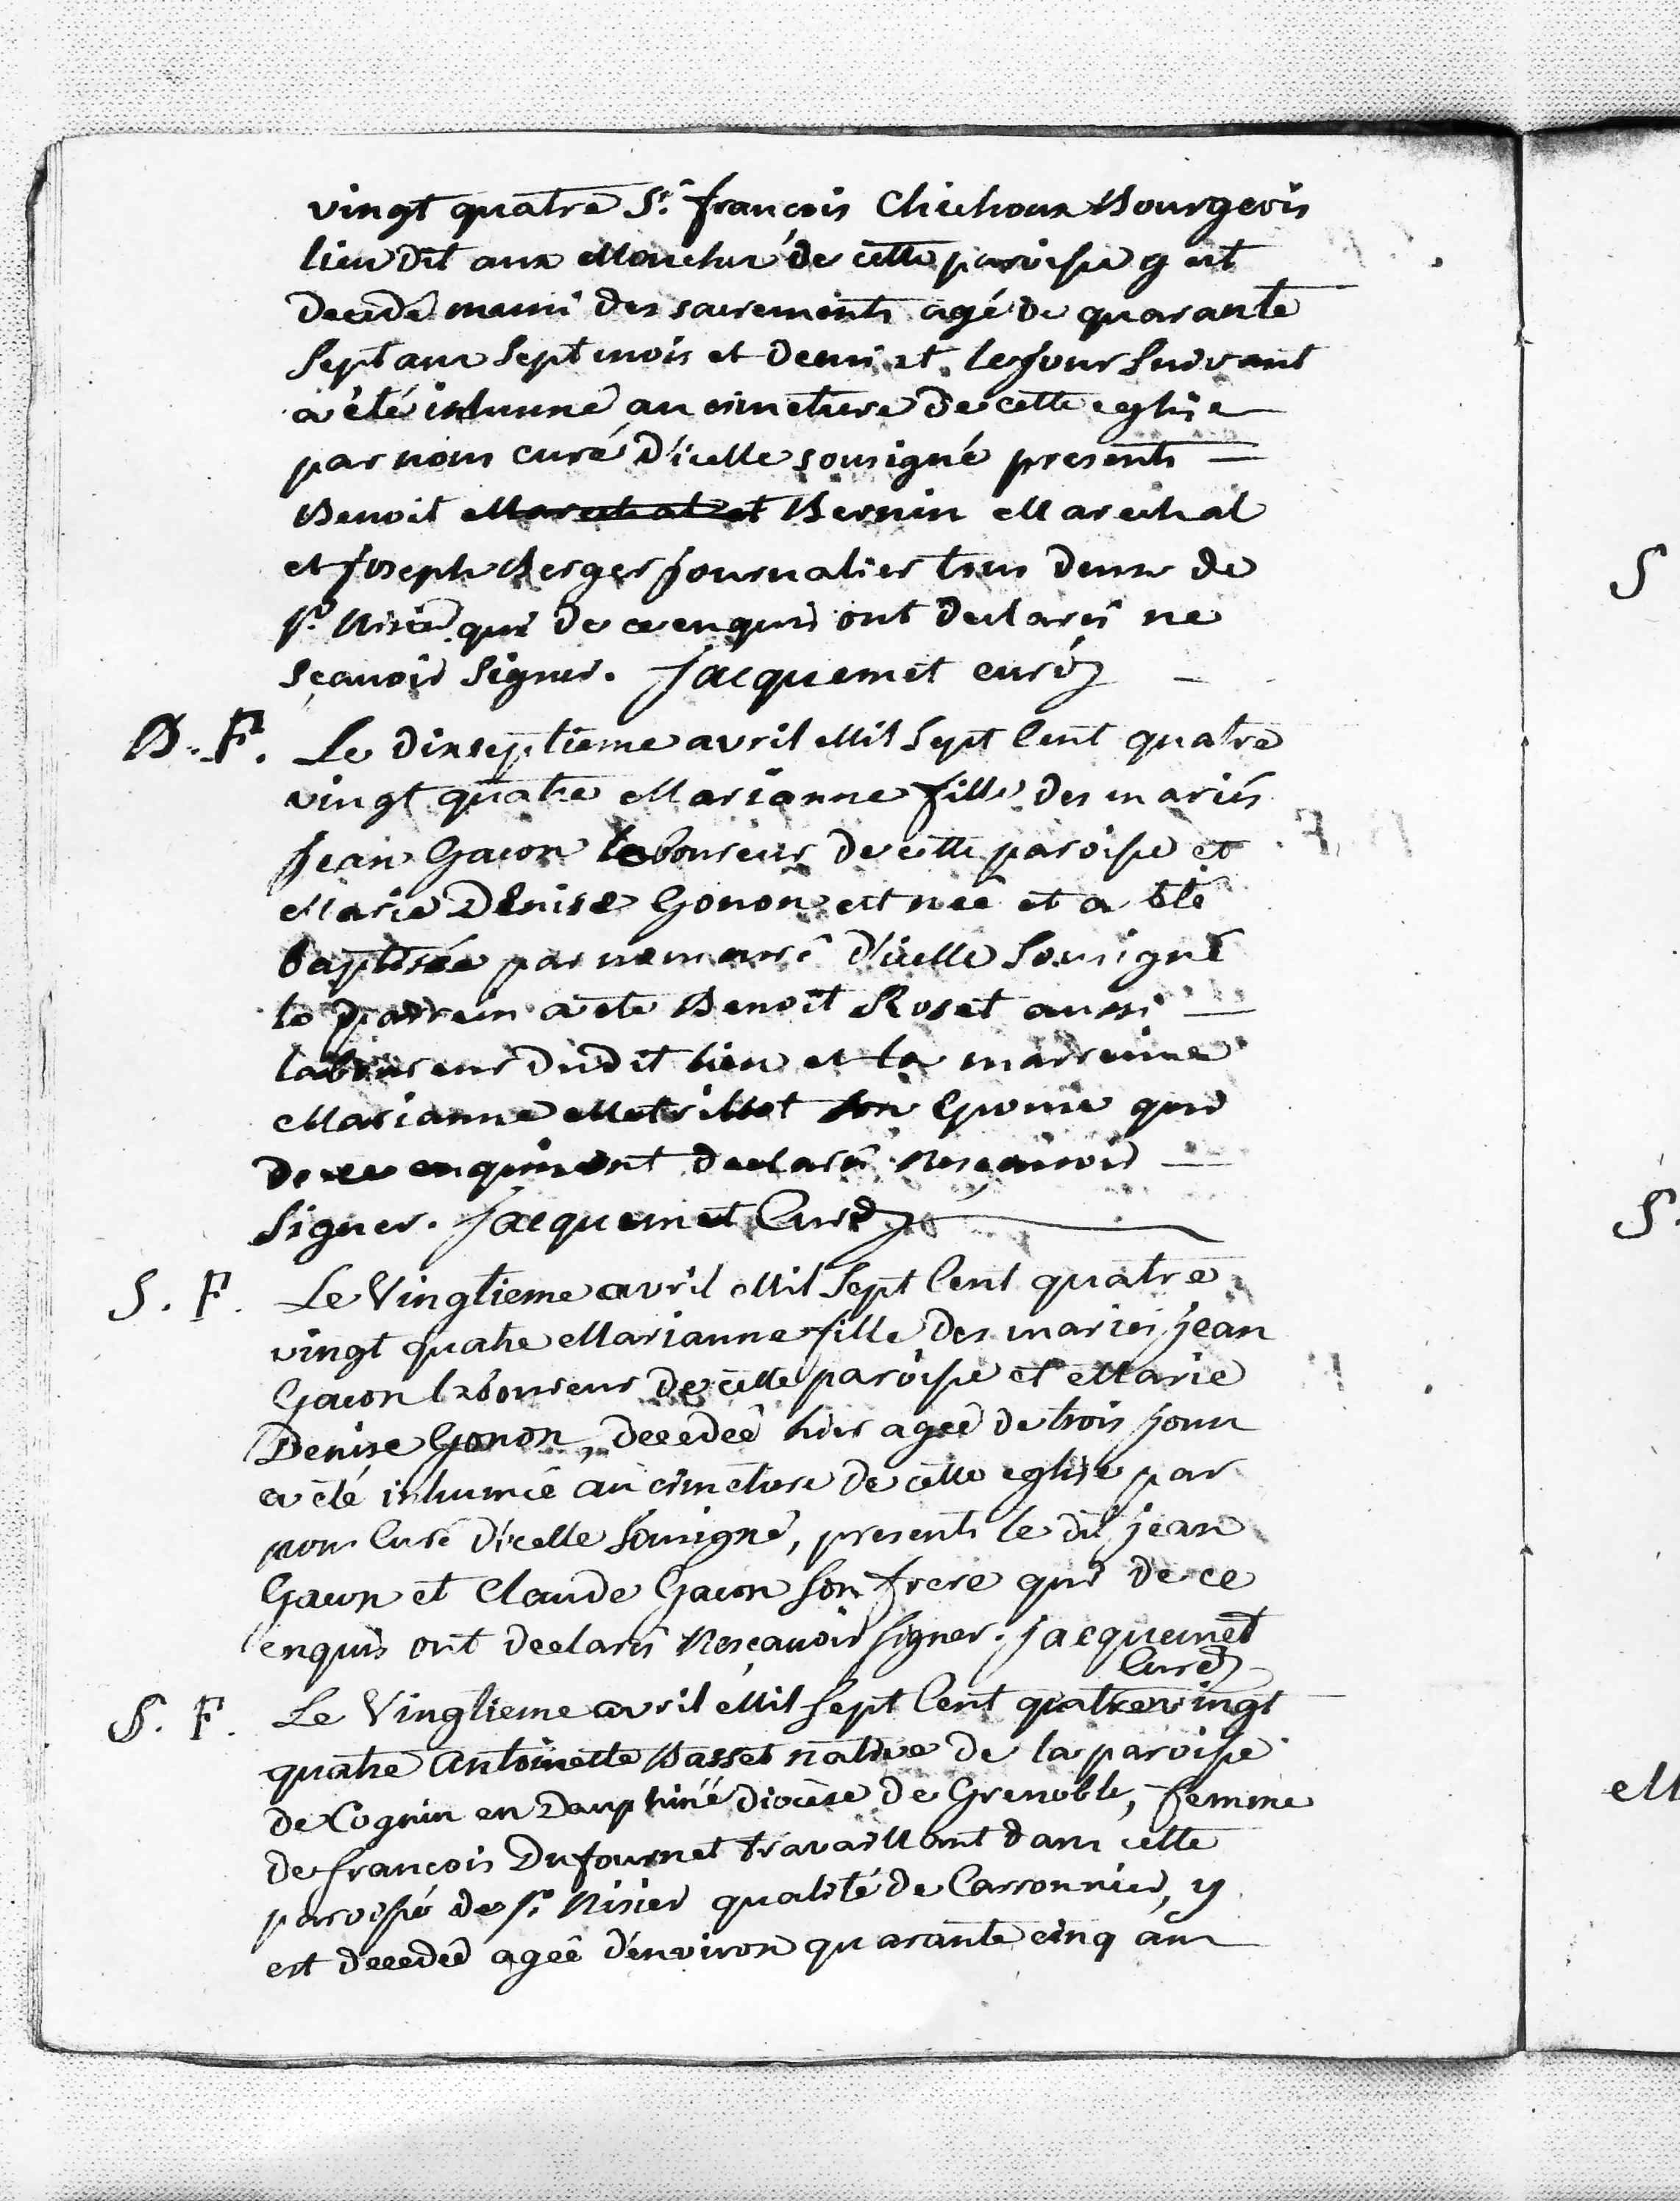 vingt quatre Sr. françois Chichoux Bourgeois
lieu dit aux de cette paroisse y est
decedé muni des sacrements agé de quarante
sept ans sept mois et demi et le jour suivant
a été inhumé au cimetiere de cette eglise
par nous curé d'icelle sousigné presents
Benoit Marechal et Bernin Marechal
et joseph Berger journalier tous deux de
st. Nisier qui de ce enquis ont declarés ne
sçavoir signer. Jacquemet curé
B. F. Le dixseptieme avril Mil sept Cent quatre
vingt quatre Marianne fille des mariés
Jean Gacon laboureur de cette paroisse et
Marie Denise Gonon est née et a été
baptisée par nous curé d'icelle sousigné
le parrein a ete Benoit Roset aussi
laboureur dudit lieu et la marreine
Marianne son Epouse qui
de ce enquis ont declarés ne sçavoir
signer. Jacquemet Curé
S. F. Le Vingtieme avril Mil sept Cent quatre
vingt quatre Marianne fille des mariés jean
Gacon laboureur de cette paroisse et Marie
Denise Gonon, decedée hier agée de trois jours
a été inhumée au cimetiere de cette eglise par
nous Curé d'icelle sousigné, presents le dit jean
Gacon et Claude Gacon son frere qui de ce
enquis ont declarés ne sçavoir signer. jacquemet
Curé
S. F. Le Vingtieme avril Mil sept Cent quatre vingt
quatre Antoinette Basset native de la paroisse
de Cognin en Dauphiné diocèse de Grenoble, femme
de françois Dufournet travaillant dans cette
paroisse de st. Nisier qualité de Carronnier, y
est decedée agée d'environ quarante cinq ans
S
S.
M